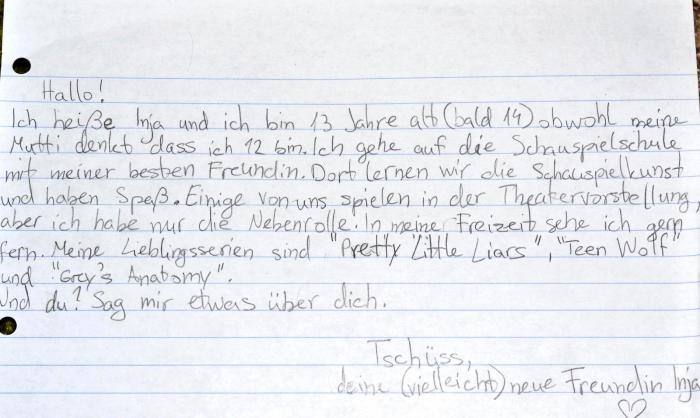 Hallo!
Ich heiße Inja und ich bin 13 Jahre alt (bald 14) obwohl meine
Mutti denkt dass ich 12 bin. Ich gehe auf die Schauspielschule
mit meiner besten Freundin. Dort lernen wir die Schauspielkunst
und haben Speß. Einige von uns spielen in der Theatervorstellung,
aber ich habe nur die Nebenrolle. In meine Freizeit sehe ich gern
fern. Meine Lieblingsserien sind "Pretty Little Liars", "Teen Wolf"
und "Grey's Anatomy".
Und du? Sag mir etwas über dich.
Tschüss,
deine (vielleicht) neue Freundin Inja